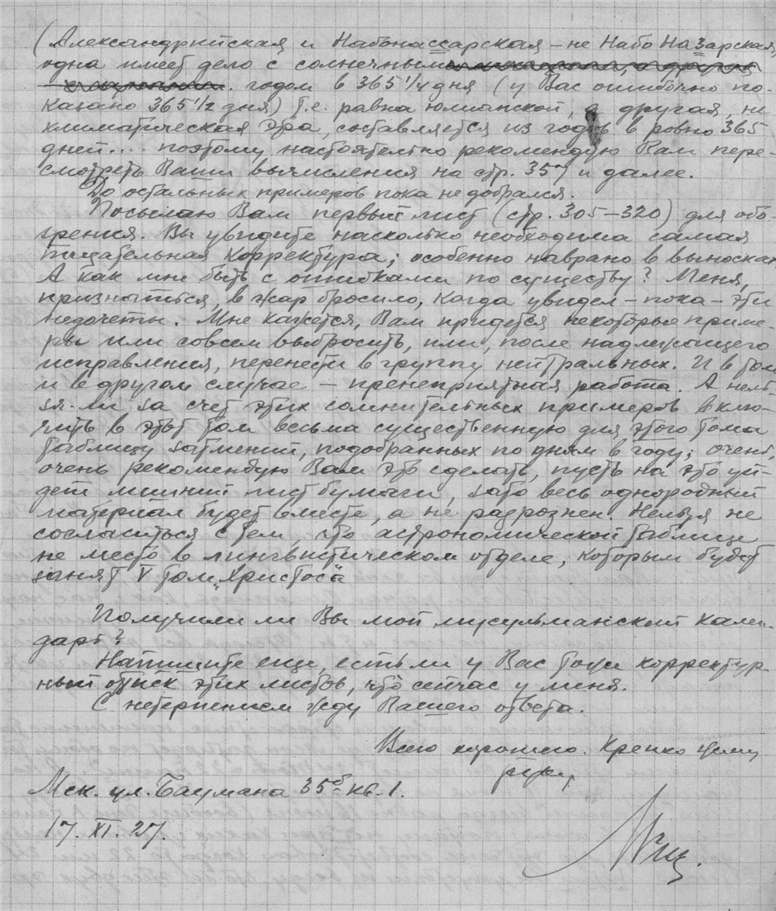 (Александрийская и Набонассарская – не Набо Назарская,
одна имеет дело с солнечным
годом в 365 1/4 дня (у Вас ошибочно по-
казано 365 1/2 дня) т.е. равна юлианской, а другая, не
климатическая эра, составляется из годов в ровно 365
дней.... поэтому настоятельно рекомендую Вам пере-
смотреть Ваши вычисления на стр. 357 и далее.
До остальных примеров пока не добрался.
Посылаю Вам первый лист (стр. 305–320) для обо-
зрения. Вы увидите насколько необходима самая
тщательная корректура; особенно наврано в выносках.
А как мне быть с ошибками по существу? Меня,
признаться, в жар бросило, когда увидел – пока – эти
недочеты. Мне кажется, Вам придется некоторые приме-
ры или совсем выбросить, или, после надлежащего
исправления, перенести в группу нейтральных. И в том
и в другом случае – пренеприятная работа. А нель-
зя-ли за счет этих сомнительных примеров вклю-
чить в этот том весьма существенную для этого тома
таблицу затмений, подобранных по дням в году; очень,
очень рекомендую Вам это сделать, пусть на это уй-
дет лишний лист бумаги, зато весь однородный
материал будет вместе, а не разрознен. Нельзя не
согласиться с тем, что астрономической таблице
не место в лингвистическом отделе, которым будет
занят V том „Христоса"
Получили ли Вы мой мусульманский кален-
дарь?
Напишите еще, есть ли у Вас тоже корректур-
ный оттиск этих листов, что сейчас у меня.
С нетерпением жду Вашего ответа.
Всего хорошего. Крепко жму
руку,
Мск. ул. Баумана 35б кв. 1.
17. XI. 27.